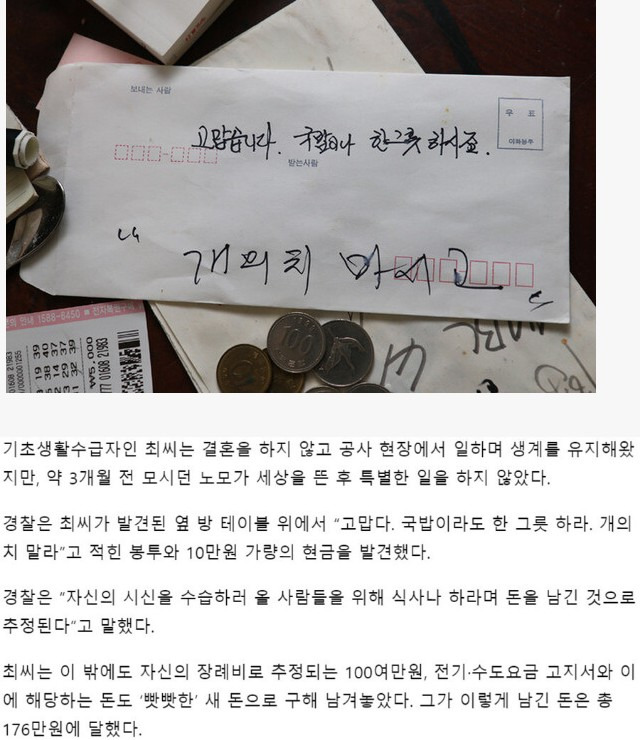 보내는 사람
우 표
고맙습니다. 국밥이나 한그릇 하시죠.
받는사람
“
개의치 마시고
”
1588-6450 ■ 전자복권
₩5,000
100
기초생활수급자인 최씨는 결혼을 하지 않고 공사 현장에서 일하며 생계를 유지해왔
지만, 약 3개월 전 모시던 노모가 세상을 뜬 후 특별한 일을 하지 않았다.
경찰은 최씨가 발견된 옆 방 테이블 위에서 “고맙다. 국밥이라도 한 그릇 하라. 개의
치 말라”고 적힌 봉투와 10만원 가량의 현금을 발견했다.
경찰은 “자신의 시신을 수습하러 올 사람들을 위해 식사나 하라며 돈을 남긴 것으로
추정된다”고 말했다.
최씨는 이 밖에도 자신의 장례비로 추정되는 100여만원, 전기·수도요금 고지서와 이
에 해당하는 돈도 ‘빳빳한’ 새 돈으로 구해 남겨놓았다. 그가 이렇게 남긴 돈은 총
176만원에 달했다.